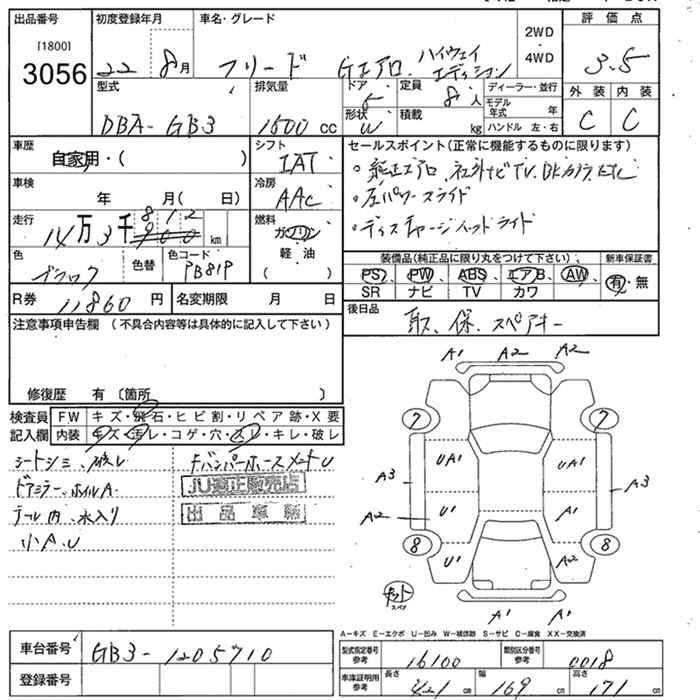 出品番号
[1800]
3056
初度登録年月
22 8月
車名・グレード
フリード Gエアロ ハイウェイエディション
2WD
・
4WD
評価点
3.5
外装 内装
C C
型式
DBA-GB3
排気量
1500 cc
ドア
5
定員
8 人
形状
W
積載
kg
ディーラー・並行
モデル年式 年
ハンドル 左・右
車歴
自家用・( )
シフト
IAT
車検
年 月( 日)
冷房
AAC
走行
14万3千812 km
燃料
ガソリン
軽・油
( )
色
ブラック
色替
色コード
PB81P
R券 11860 円
名変期限 月 日
セールスポイント(正常に機能するものに限ります)
・純正エアロ、社外ナビTV、Bカメラ、ETC
・左パワースライド
・ディスチャージヘッドライド
装備品(純正品に限り丸をつけて下さい)
新車保証書
PS PW ABS エアB AW
SR ナビ TV カワ
有・無
後日品
取、保、スペアキー
注意事項申告欄(不具合内容等は具体的に記入して下さい)
修復歴 有(箇所 )
検査員記入欄
FW キズ・飛石・ヒビ割・リペア跡・X要
内装 キズ・汚レ・コゲ・穴・スレ・キレ・破レ
シートシミ、破レ
ドアミラー、ホイルA
テール内、水入り
小A.U
FバンパーホースメントU
JU適正販売店
出品車輌
A1 A2 A2
7 7
UA1 A1
A3 A3
A2 U1 A1
8 8
U1 A2
スペア
A1 A1
A-キズ E-エクボ U-凹み W-補修跡 S-サビ C-腐食 XX-交換済
車台番号 GB3-1205710
登録番号
型式指定番号参考 16100
類別区分番号参考 0018
車庫証明用参考
長さ 421 cm
幅 169 cm
高さ 171 cm